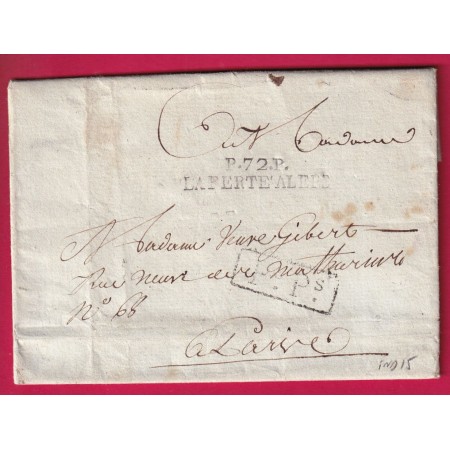 A Madame
P.72.P.
LA FERTE ALEPS
A Madame Veuve Gibert
Rue neuve des Mathurins
N° 66
P. Ps.
a Paris
IND 15